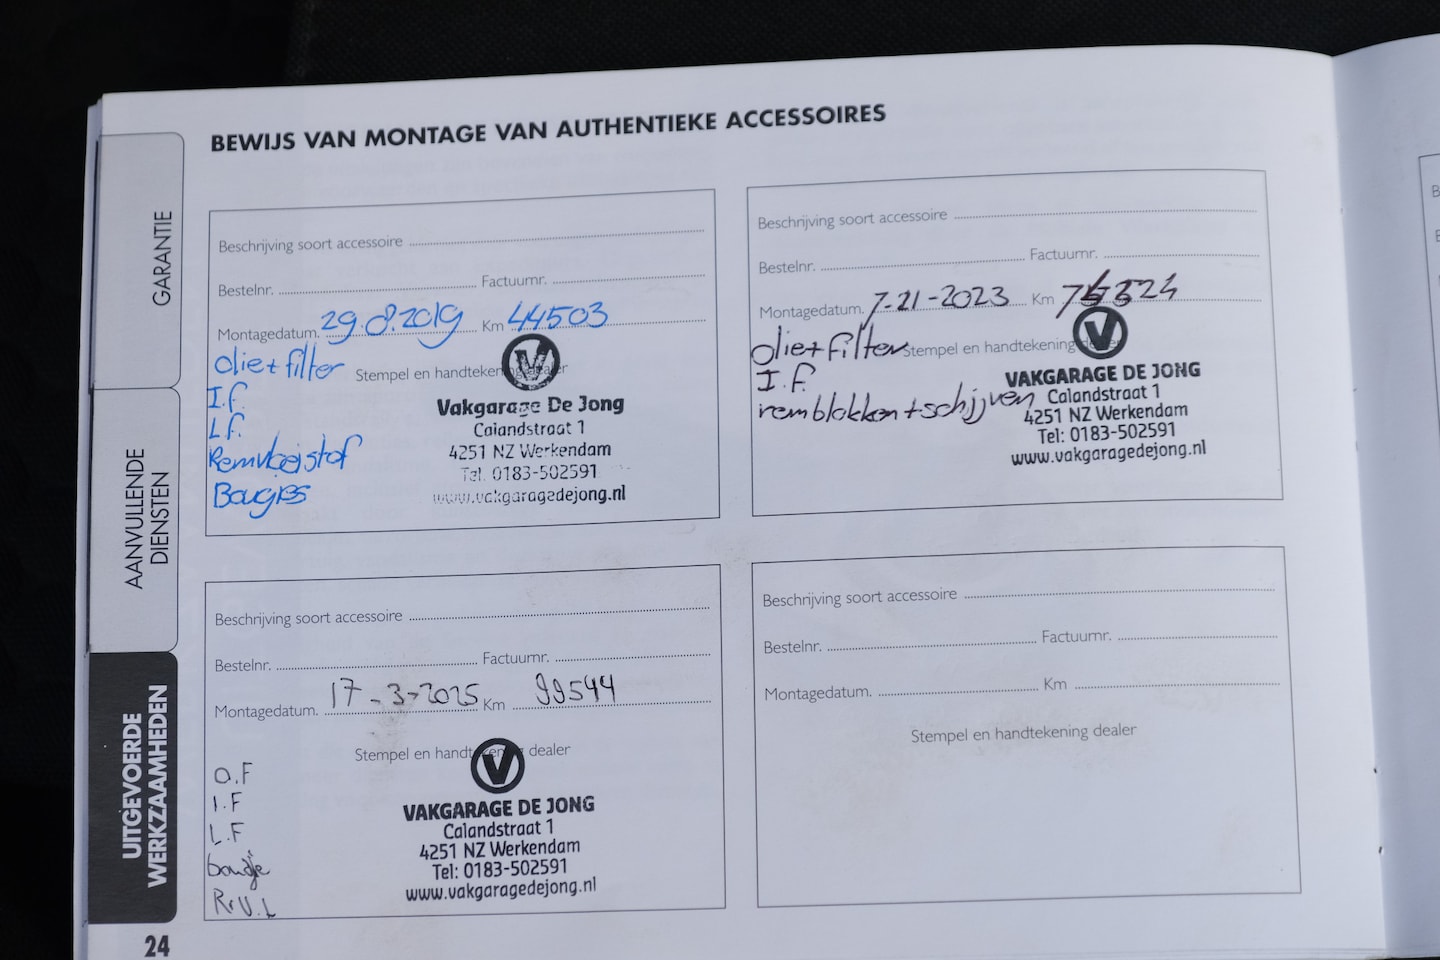 BEWIJS VAN MONTAGE VAN AUTHENTIEKE ACCESSOIRES
GARANTIE
AANVULLENDE
DIENSTEN
UITGEVOERDE
WERKZAAMHEDEN
Beschrijving soort accessoire
Bestelnr. Factuurnr.
Montagedatum. 29.08.2019 Km 44503
olie+filter
Stempel en handtekening dealer
I.f.
L.f.
Remvloeistof
Bougies
Vakgarage De Jong
Calandstraat 1
4251 NZ Werkendam
Tel. 0183-502591
www.vakgaragedejong.nl
Beschrijving soort accessoire
Bestelnr. Factuurnr.
Montagedatum. 7-21-2023 Km
olie+filter
Stempel en handtekening dealer
I.F.
remblokken+schijven
VAKGARAGE DE JONG
Calandstraat 1
4251 NZ Werkendam
Tel: 0183-502591
www.vakgaragedejong.nl
Beschrijving soort accessoire
Bestelnr. Factuurnr.
Montagedatum. 17-3-2025 Km 99544
Stempel en handtekening dealer
O.F
I.F
L.F
bougie
VAKGARAGE DE JONG
Calandstraat 1
4251 NZ Werkendam
Tel: 0183-502591
www.vakgaragedejong.nl
Beschrijving soort accessoire
Bestelnr. Factuurnr.
Montagedatum. Km
Stempel en handtekening dealer
24